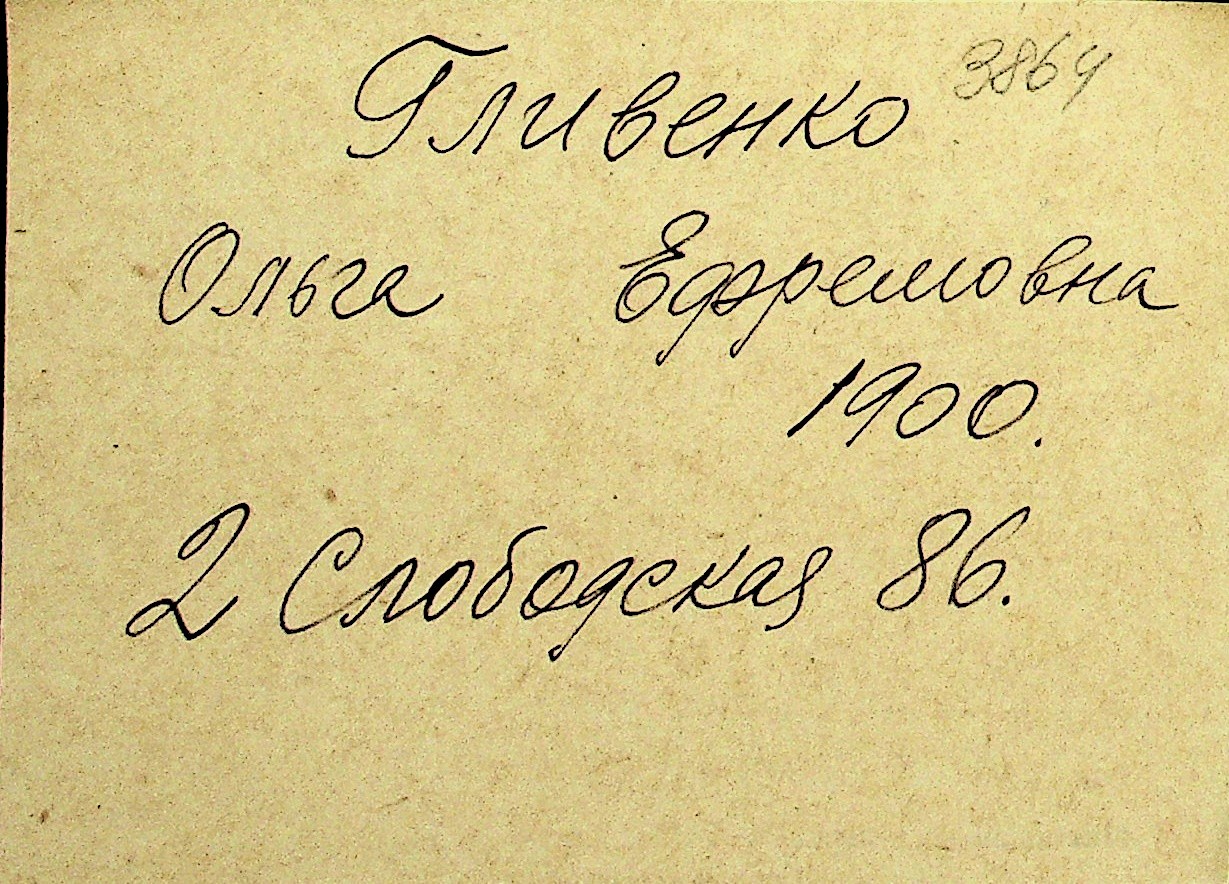 Гливенко 3864
Ольга Ефремовна
1900.
2 Слободская 86.